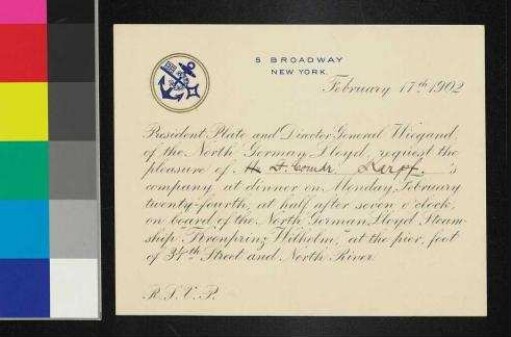 5 BROADWAY
NEW YORK
February 17th 1902
President Plate and Director General Wiegand,
of the North German Lloyd, request the
pleasure of 's
company, at dinner on Monday, February
twenty-fourth, at half after seven o'clock,
on board of the North German Lloyd Steam-
ship "Kronprinz Wilhelm," at the pier, foot
of 34th Street and North River.
R.S.V.P.